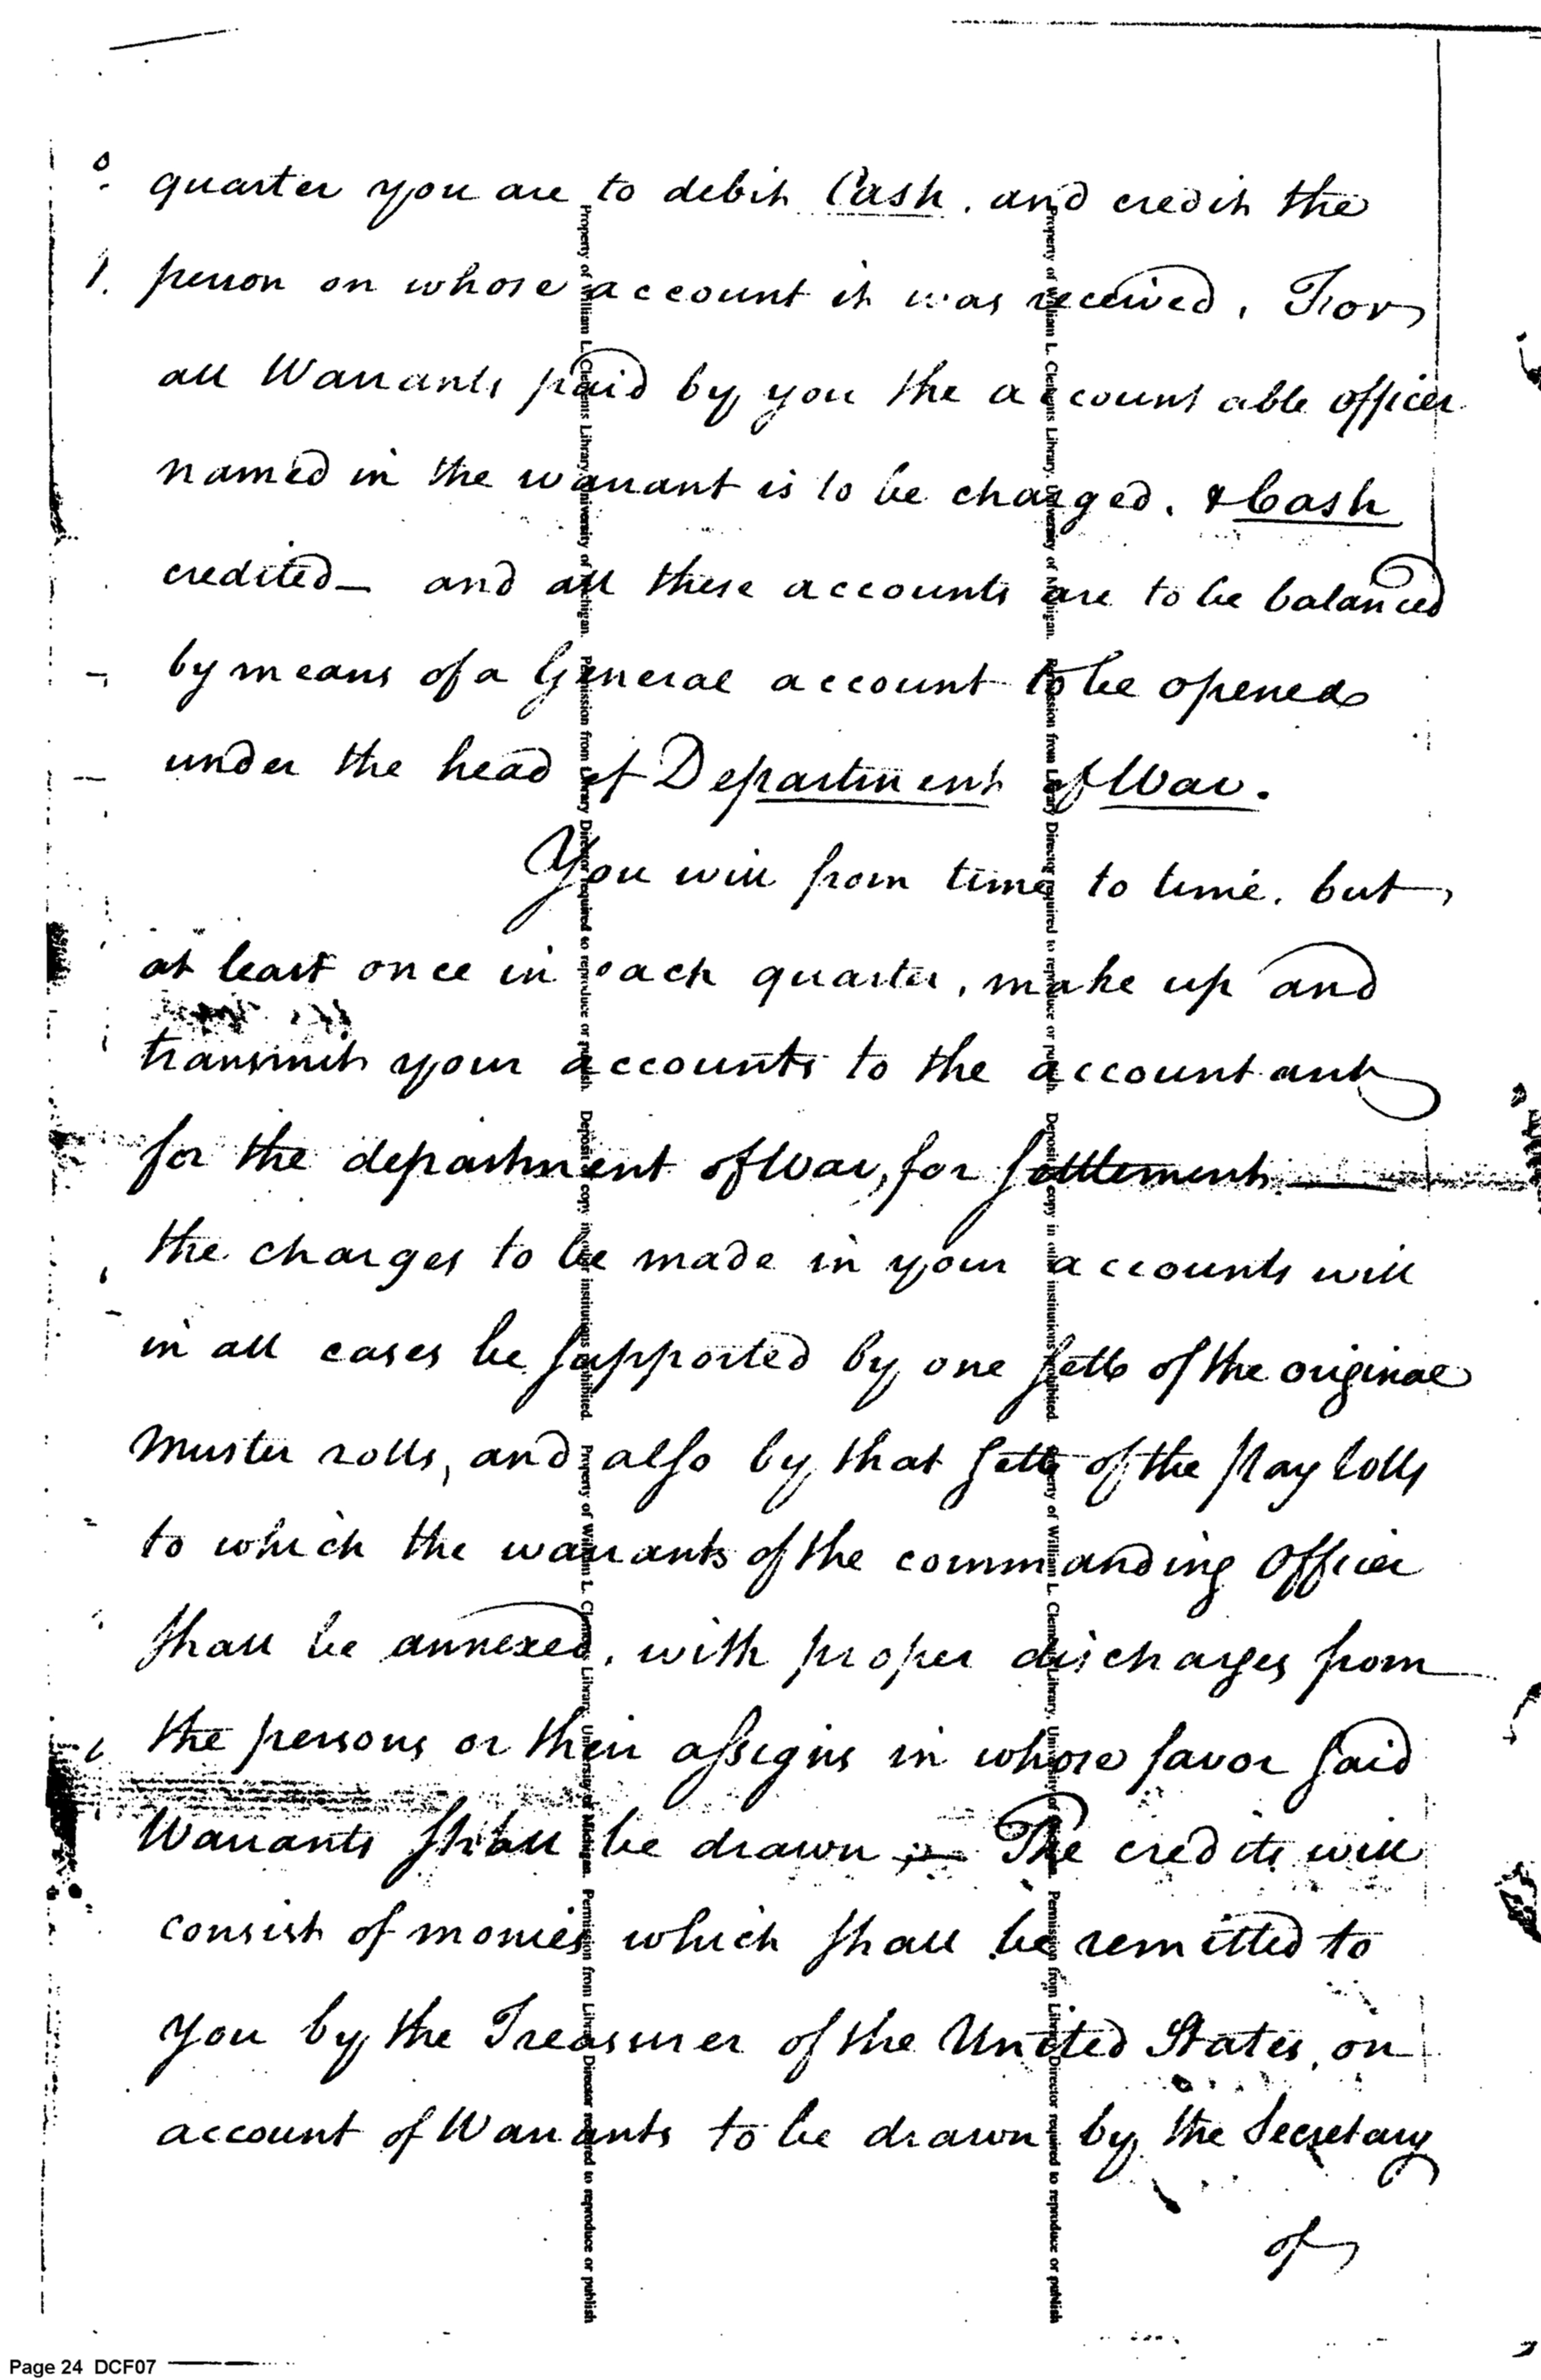 quarter you are to debit Cash, and credit the
person on whose account it was received, For
all Warrants paid by you the accountable officer
named in the warrant is to be charged, & Cash
credited — and all these accounts are to be balanced
by means of a General account to be opened
under the head of Department of War.
You will from time to time, but
at least once in each quarter, make up and
transmit your accounts to the accountant
for the department of War, for settlement —
the charges to be made in your accounts will
in all cases be supported by one sett of the original
muster rolls, and also by that sett of the pay rolls
to which the warrants of the commanding Officer
shall be annexed, with proper discharges from
the persons or their assigns in whose favor said
Warrants shall be drawn — The credits will
consist of monies which shall be remitted to
you by the Treasurer of the United States, on
account of Warrants to be drawn by the Secretary
of
Property of William L. Clements Library, University of Michigan. Permission from Library Director required to reproduce or publish. Deposit of copy in other institutions prohibited. Property of William L. Clements Library, University of Michigan. Permission from Library Director required to reproduce or publish
Property of William L. Clements Library, University of Michigan. Permission from Library Director required to reproduce or publish. Deposit of copy in other institutions prohibited. Property of William L. Clements Library, University of Michigan. Permission from Library Director required to reproduce or publish
Page 24 DCF07